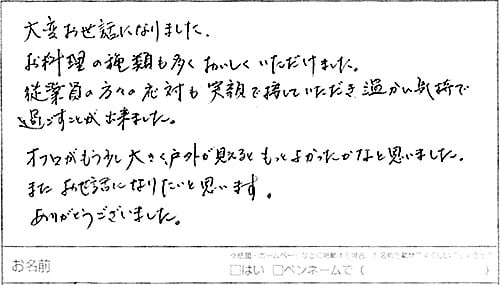 大変お世話になりました.
お料理の種類も多くおいしくいただけました。
従業員の方々の応対も笑顔で接していただき温かい気持で
過ごすことが出来ました。
オフロがもう少し大きく戸外が見えるともっとよかったかなと思いました.
またお世話になりたいと思います。
ありがとうございました。
お名前
□はい □ペンネームで (